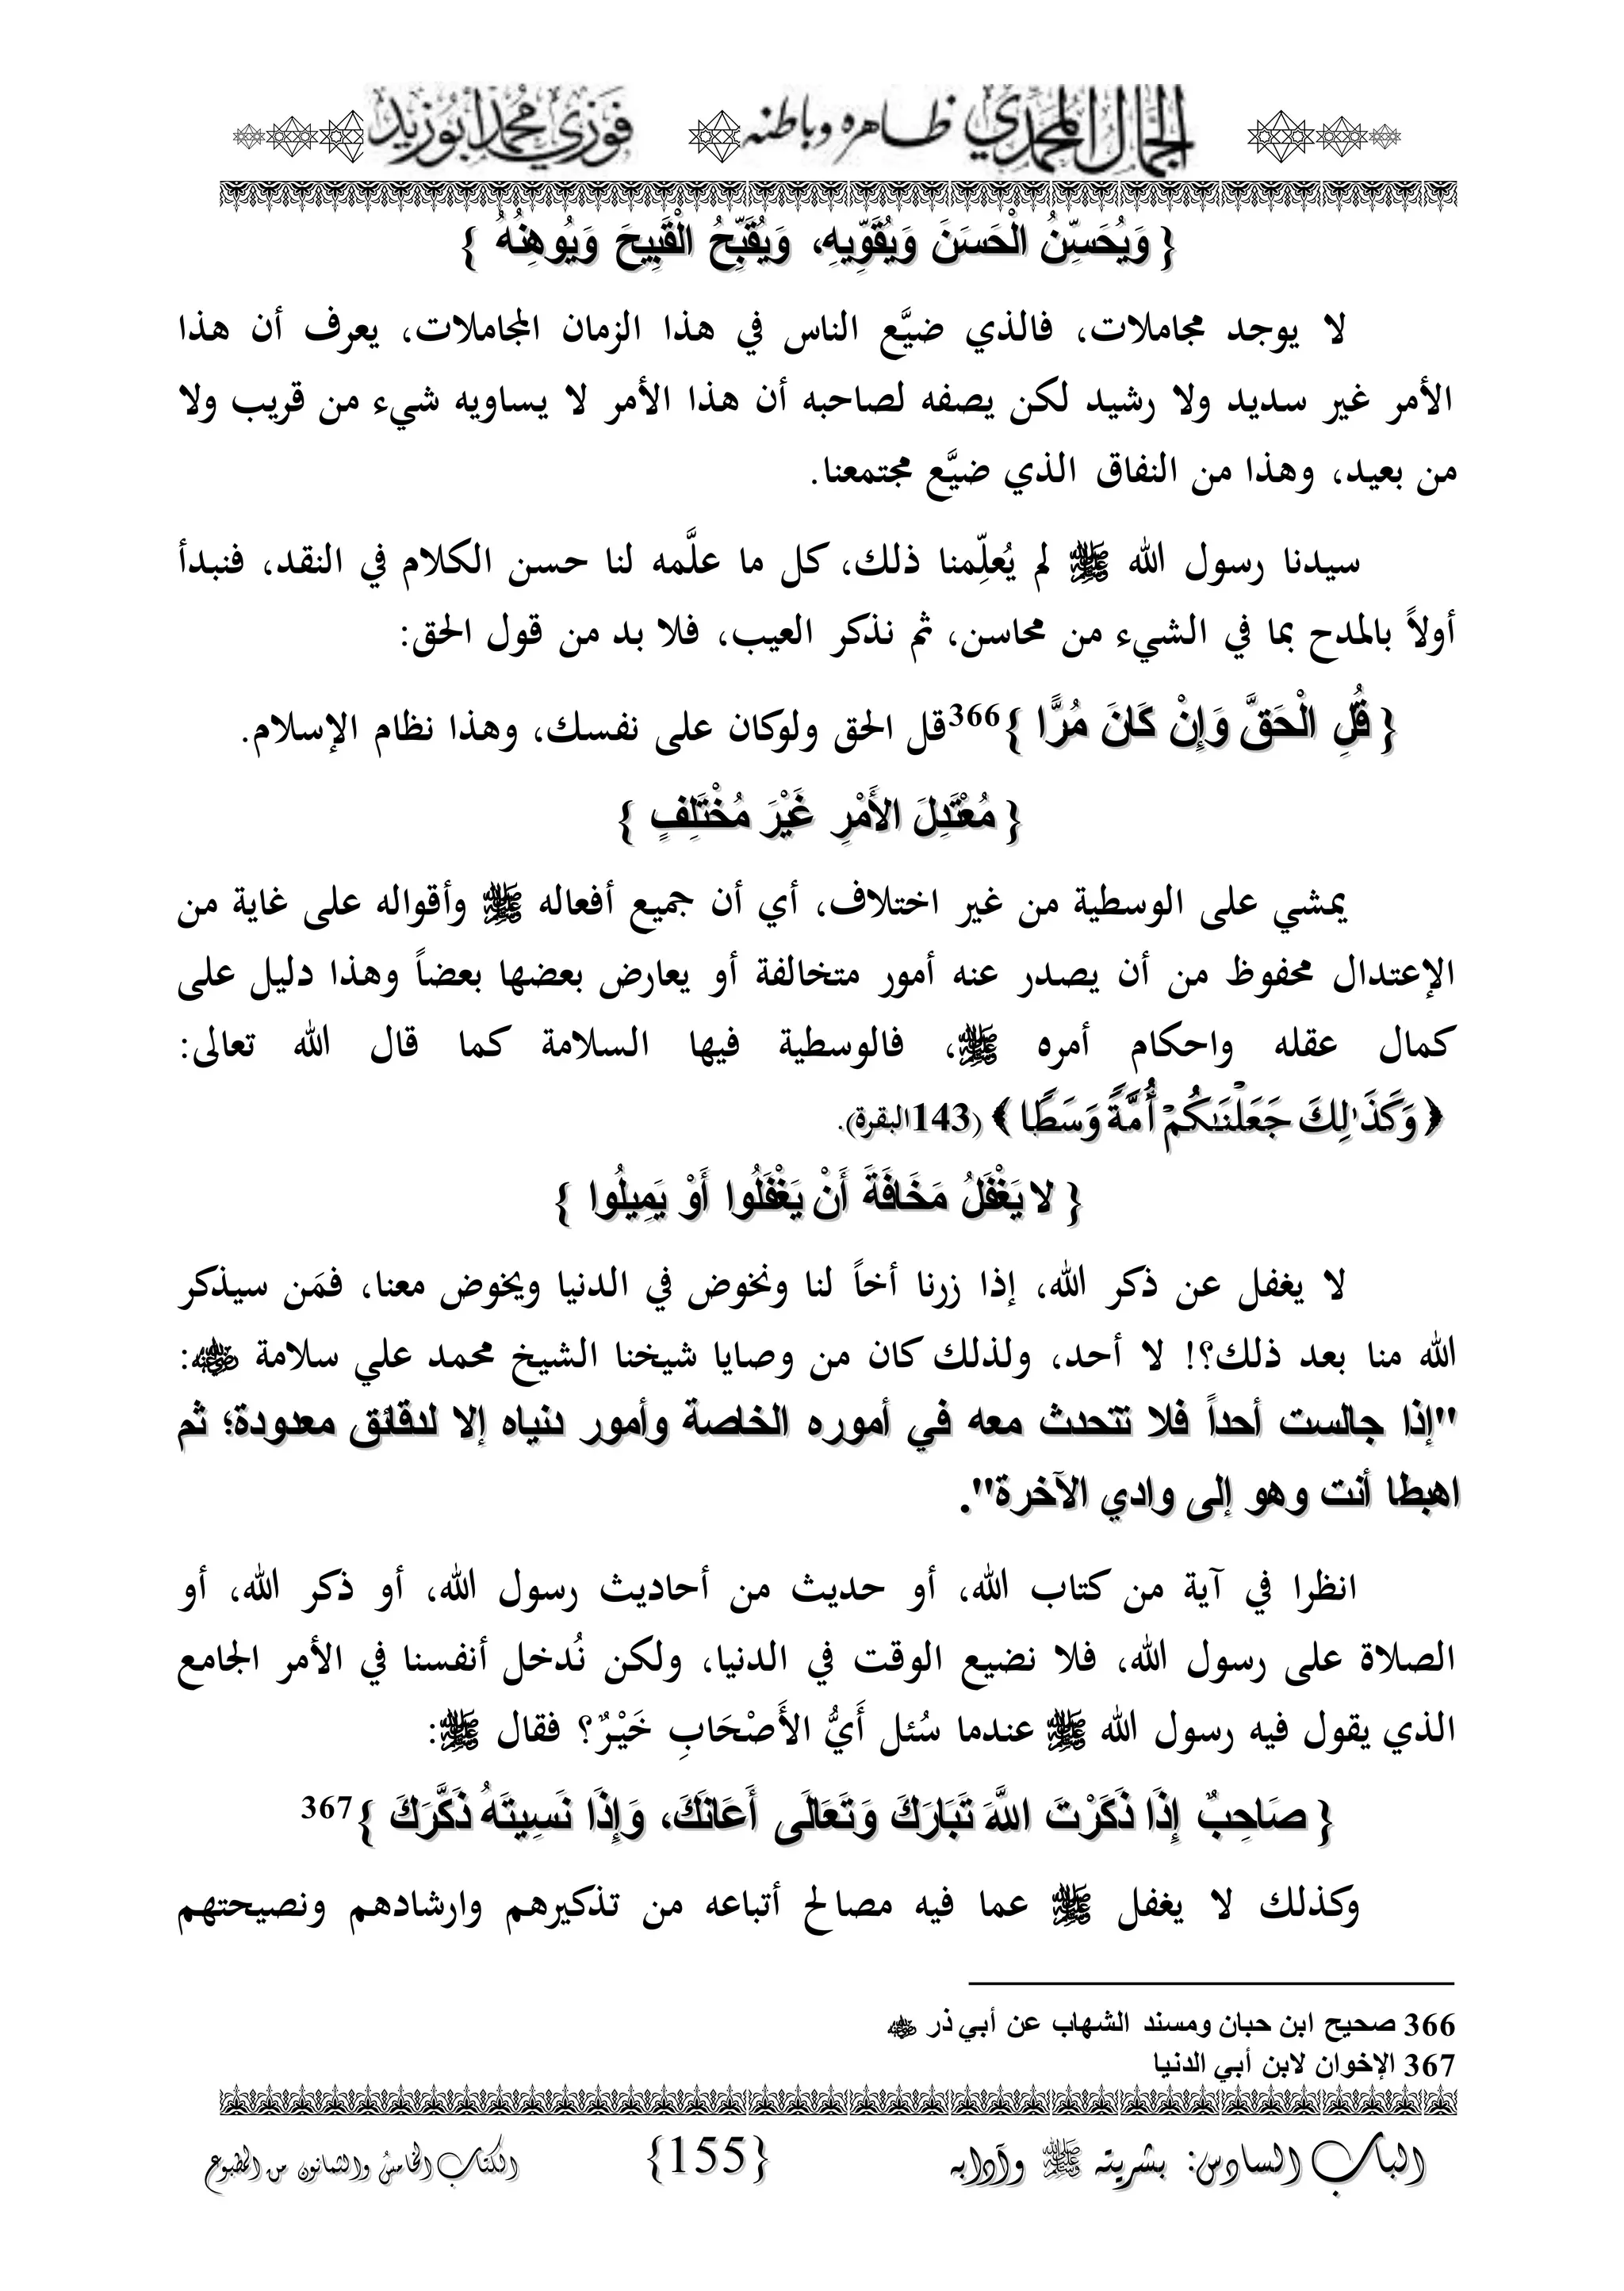 الجمال المحمدي ظاهره وباطنه فوزي محمد أبوزيد
{ وَيُحَسِّنُ الْحَسَنَ وَيُقَوِّيهِ، وَيُقَبِّحُ الْقَبِيحَ وَيُوهِنُهُ }
لا يوجد مجاملات، فالذي ضيَّع الناس في هذا الزمان المجاملات، يعرف أن هذا
الأمر غير سديد ولا رشيد لكن يصفه لصاحبه أن هذا الأمر لا يساويه شيء من قريب ولا
من بعيد، وهذا من النفاق الذي ضيَّع مجتمعنا.
سيدنا رسول الله ﷺ لم يُعلِّمنا ذلك، كل ما علَّمه لنا حسن الكلام في النقد، فنبدأ
أولاً بالمدح بما في الشيء من محاسن، ثم نذكر العيب، فلا بد من قول الحق:
{ قُلِ الْحَقَّ وَإِنْ كَانَ مُرًّا }366 قل الحق ولوكان على نفسك، وهذا نظام الإسلام.
{ مُعْتَدِلَ الأَمْرِ غَيْرَ مُخْتَلِفٍ }
يمشي على الوسطية من غير اختلاف، أي أن جميع أفعاله ﷺ وأقواله على غاية من
الإعتدال محفوظ من أن يصدر عنه أمور متخالفة أو يعارض بعضها بعضاً وهذا دليل على
كمال عقله واحكام أمره ﷺ، فالوسطية فيها السلامة كما قال الله تعالى:
﴿ وَكَذَٰلِكَ جَعَلْنَٰكُمْ أُمَّةً وَسَطًا ﴾ (143البقرة).
{ لا يَغْفَلُ مَخَافَةَ أَنْ يَغْفَلُوا أَوْ يَمِيلُوا }
لا يغفل عن ذكر الله، إذا زرنا أخاً لنا ونخوض في الدنيا ويخوض معنا، فمَن سيذكر
الله منا بعد ذلك؟! لا أحد، ولذلك كان من وصايا شيخنا الشيخ محمد علي سلامة ﷺ:
"إذا جالست أحداً فلا تتحدث معه في أموره الخاصة وأمور دنياه إلا لدقائق معدودة؛ ثم
اهبطا أنت وهو إلى وادي الآخرة".
انظرا في آية من كتاب الله، أو حديث من أحاديث رسول الله، أو ذكر الله، أو
الصلاة على رسول الله، فلا نضيع الوقت في الدنيا، ولكن نُدخل أنفسنا في الأمر الجامع
الذي يقول فيه رسول الله ﷺ عندما سُئل أَيُّ الأَصْحَابِ خَيْرٌ؟ فقال ﷺ:
{ صَاحِبٌ إِذَا ذَكَرْتَ اللهَ تَبَارَكَ وَتَعَالَى أَعَانَكَ، وَإِذَا نَسِيتَهُ ذَكَّرَكَ }367
وكذلك لا يغفل ﷺ عما فيه مصالح أتباعه من تذكيرهم وارشادهم ونصيحتهم
366 صحيح ابن حبان ومسند الشهاب عن أبي ذر
367 الإخوان لابن أبي الدنيا
الباب السادس: بشريته ﷺ وآدابه {155} الكتاب الخامس والثمانون من المطبوع